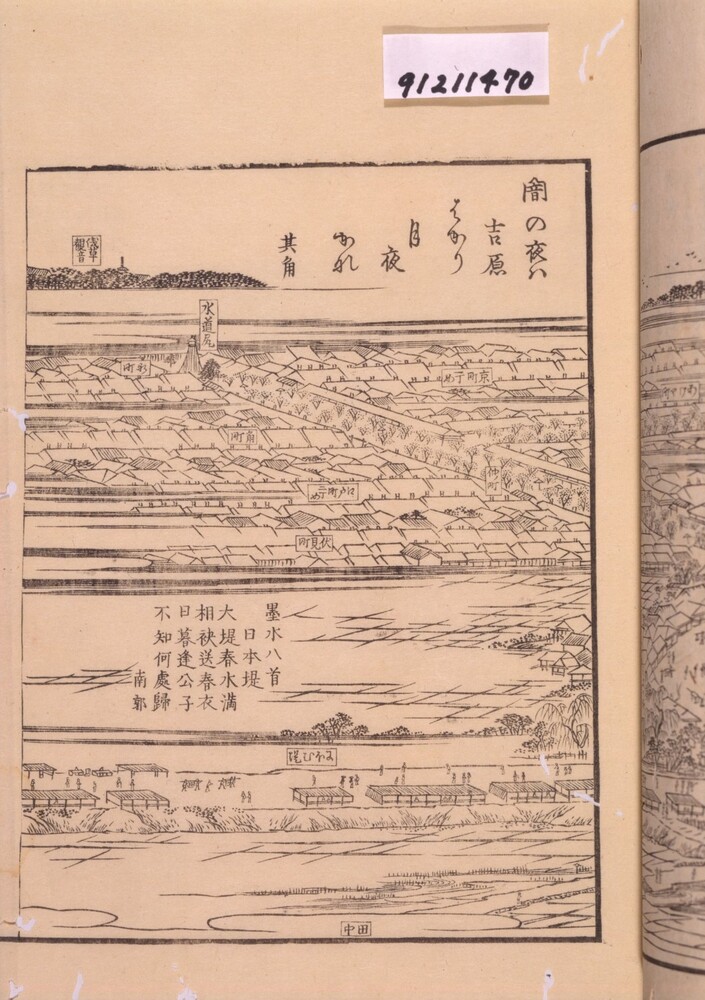 91211470
闇の夜ハ
吉原
はかり
月
夜
かれ
其角
浅草
観音
水道尻
京町一丁め
町
角町
仲町
江戸町二丁め
伏見町
墨水八首
日本堤
大堤春水満
相袂送春衣
日暮逢公子
不知何處歸
南郭
にほん堤
中田